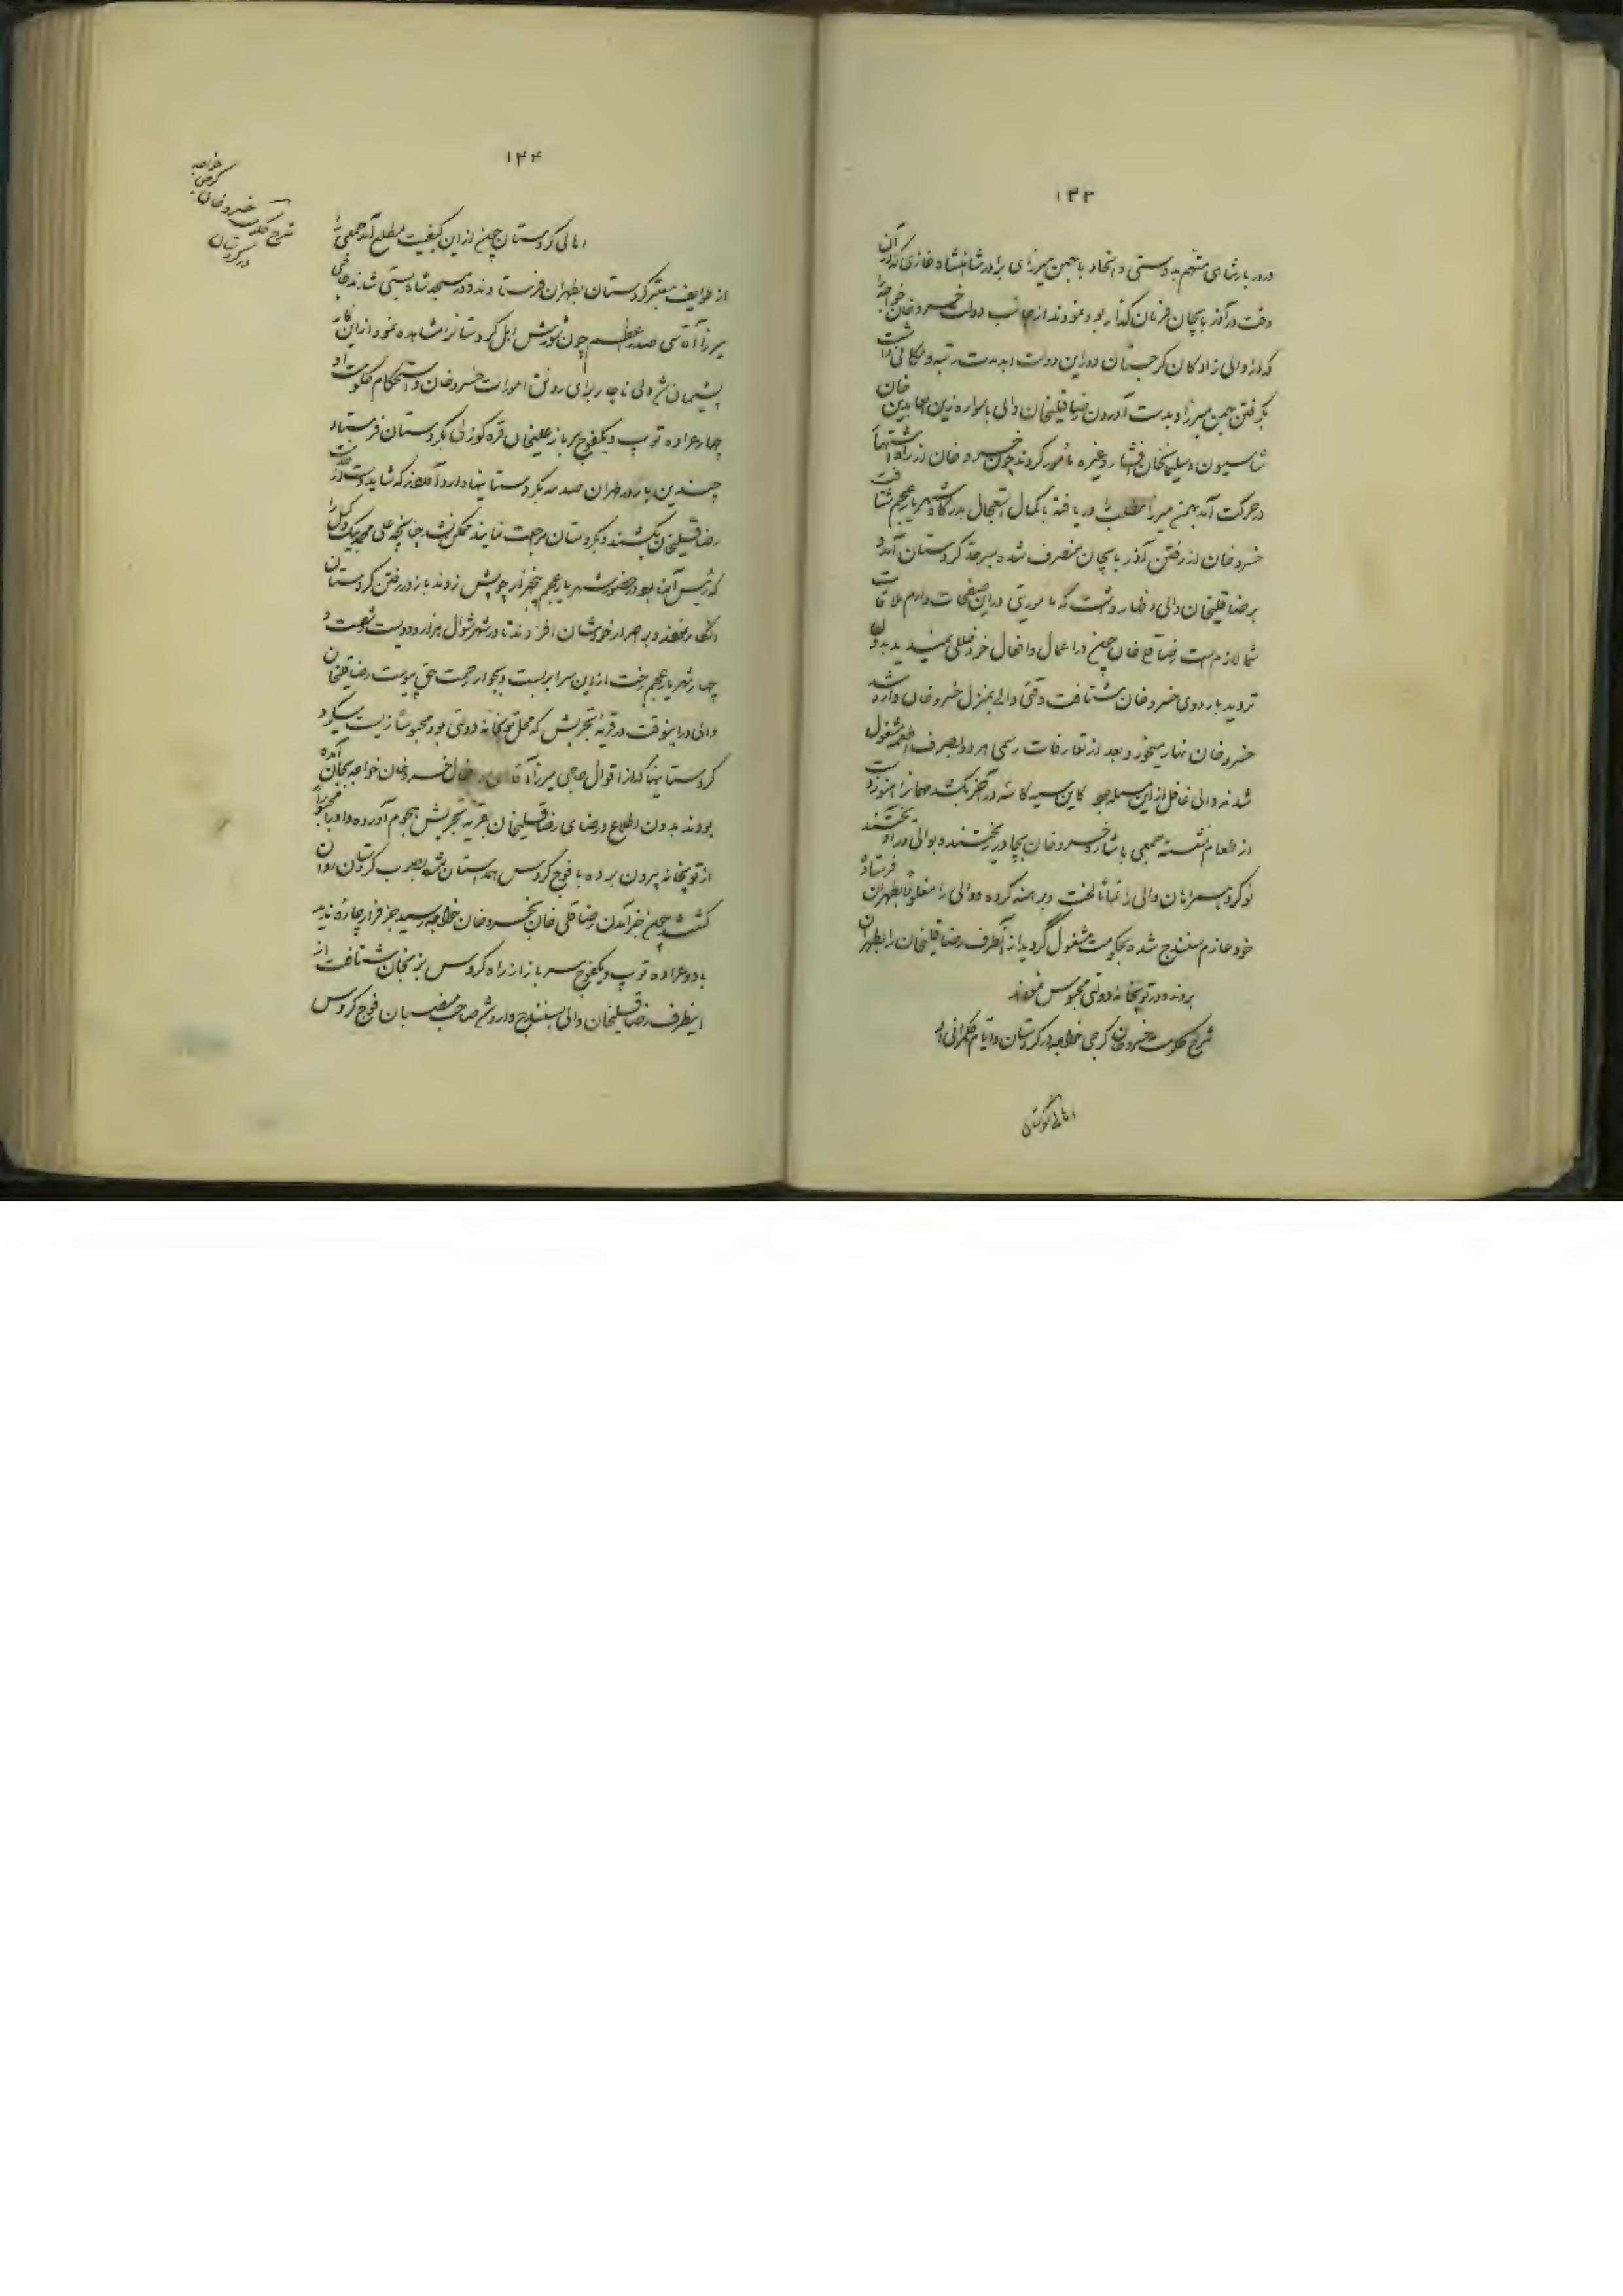 ۱۴۳
در دربار شاهی متهم بدوستی و اتحاد با بهمن میرزای برادر شاهنشاه غازی که در آن
وقت در آذربایجان فرمان گذار بود نمودند از جانب دولت خسروخان خواجه
که از والی زادگان گرجستان و در این دولت ابد مدت رتبه و مکانی داشت
بگرفتن بهمن میرزا و بدست آوردن رضا قلیخان والی با سواره زین العابدین خان
شاسیون و سلیمانخان افشار و غیره مأمور کردند چون خسرو خان از راه
در حرکت آمد بهمن میرزا مطلب را دریافته با کمال استعجال بدرگاه شهریار عجم شتافت
خسرو خان از رفتن آذربایجان منصرف شده بسر حد کردستان آمد و
برضا قلیخان والی اظهار داشت که مأموریتی در این صفحات دارم ملاقات
شما لازم است رضا قلی خان چون در اعمال و افعال خود خللی نمیدید بدون
تردید باردوی خسرو خان شتافت وقتی والی بمنزل خسرو خان وارد شد
خسرو خان نهار میخورد بعد از تعارفات رسمی هر دو بصرف اطعمه مشغول
شدند والی غافل از این مسئله بود کاین سیه کاسه در آخر بکشد مهمانرا هنوز دست
از طعام نشسته جمعی باشاره خسرو خان بچادر ریختند و بوالی در آویختند
نوکر و همراهان والی را تماماً لخت و برهنه کرده و والی را مغلولاً بطهران فرستاد
خود عازم سنندج شده بحکومت مشغول گردید از آنطرف رضا قلیخان را بطهران
برده در توپخانه دولتی محبوس نمودند
شرح حکومت خسرو خان گرجی خواجه در کردستان و ایام حکمرانی او
اهالی کردستان
۱۴۴
شرح حکومت خسرو خان گرجی خواجه در کردستان
اهالی کردستان چون از این کیفیت مطلع آمد جمعی را
از طوایف معتبر کردستان بطهران فرستادند و در مسجد شاه بستی شدند حاجی
میرزا آقاسی صدر اعظم چون شورش اهل کردستانرا مشاهده نمود از این کار
پشیمان شد ولی ناچار برای رونق امورات خسرو خان و استحکام حکومت او
چهار عراده توپ و یکفوج سرباز علیخان قره گوزلی بکردستان فرستاد
چندین بار در طهران صدمه بکردستانیها وارد آوردند که شاید دست از
رضا قلیخان بکشند و بکردستان مراجعت نمایند ممکن نشد چنانچه علی محمد بیک وکیل را
که رئیس آنها بود در حضور شهریار عجم پنجهزار چوبش زدند باز در رفتن کردستان
انکار نمودند و بر اصرار خودشان افزودند تا در شهر شوال هزار و دویست و شصت و
چهار شهریار عجم رخت از این سرا بربست و بجوار رحمت حق پیوست رضا قلیخان
والی در اینوقت در قریه تجریش که محل توپخانه دولتی بود محبوساً زیست میکرد
کردستانیها که از اقوال حاجی میرزا آقاسی و افعال خسرو خان خواجه بجان آمده
بودند بدون اطلاع و رضای رضا قلیخان بقریه تجریش هجوم آورده و او را مجبوراً
از توپخانه بیرون برده با فوج گروس همداستان شده بصوب کردستان روان
گشتند چون خبر آمدن رضا قلی خان بخسرو خان خواجه رسید جز فرار چاره ندید
با دو عراده توپ و یکفوج سرباز از راه گروس بزنجان شتافت از
اینطرف رضا قلیخان والی بسنندج وارد شد صاحب منصبان فوج گروس